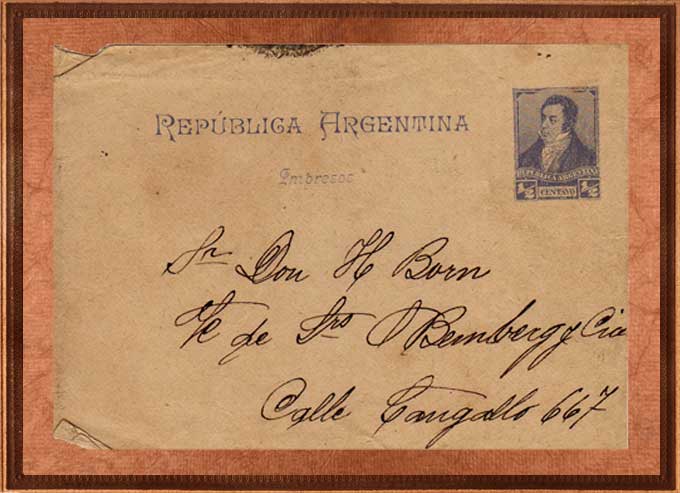 REPÚBLICA ARGENTINA
Impresos
REPUBLICA ARGENTINA
1/2 CENTAVO 1/2
Sr Don H Born
de Srs O Bemberg y Cia
Calle Cangallo 667